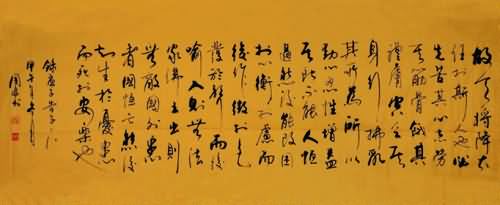 故天將降大
任於斯人也必
先苦其心志勞
其筋骨餓其
體膚空乏其
身行拂亂
其所為所以
動心忍性增益
其所不能人恒
過然後能改困
於心衡於慮而
後作徵於色
發於聲而後
喻入則無法
家拂士出則
無敵國外患
者國恒亡然後
知生於憂患
而死於安樂也
錄孟子告子
甲午年